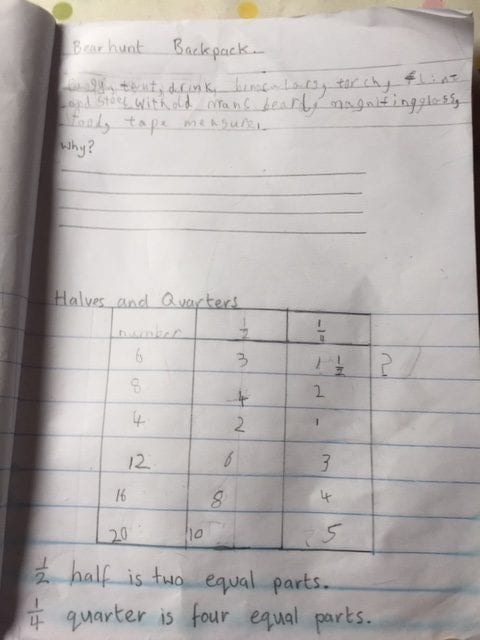 Bear hunt Backpack.
tent, drink, binoculars, torch, flint
and steel with old mans beard, magnitingglass,
food, tape measure.
Why?
Halves and Quarters
number 1/2 1/4
6 3 1 1/2 ?
8 4 2
4 2 1
12 6 3
16 8 4
20 10 5
1/2 half is two equal parts.
1/4 quarter is four equal parts.